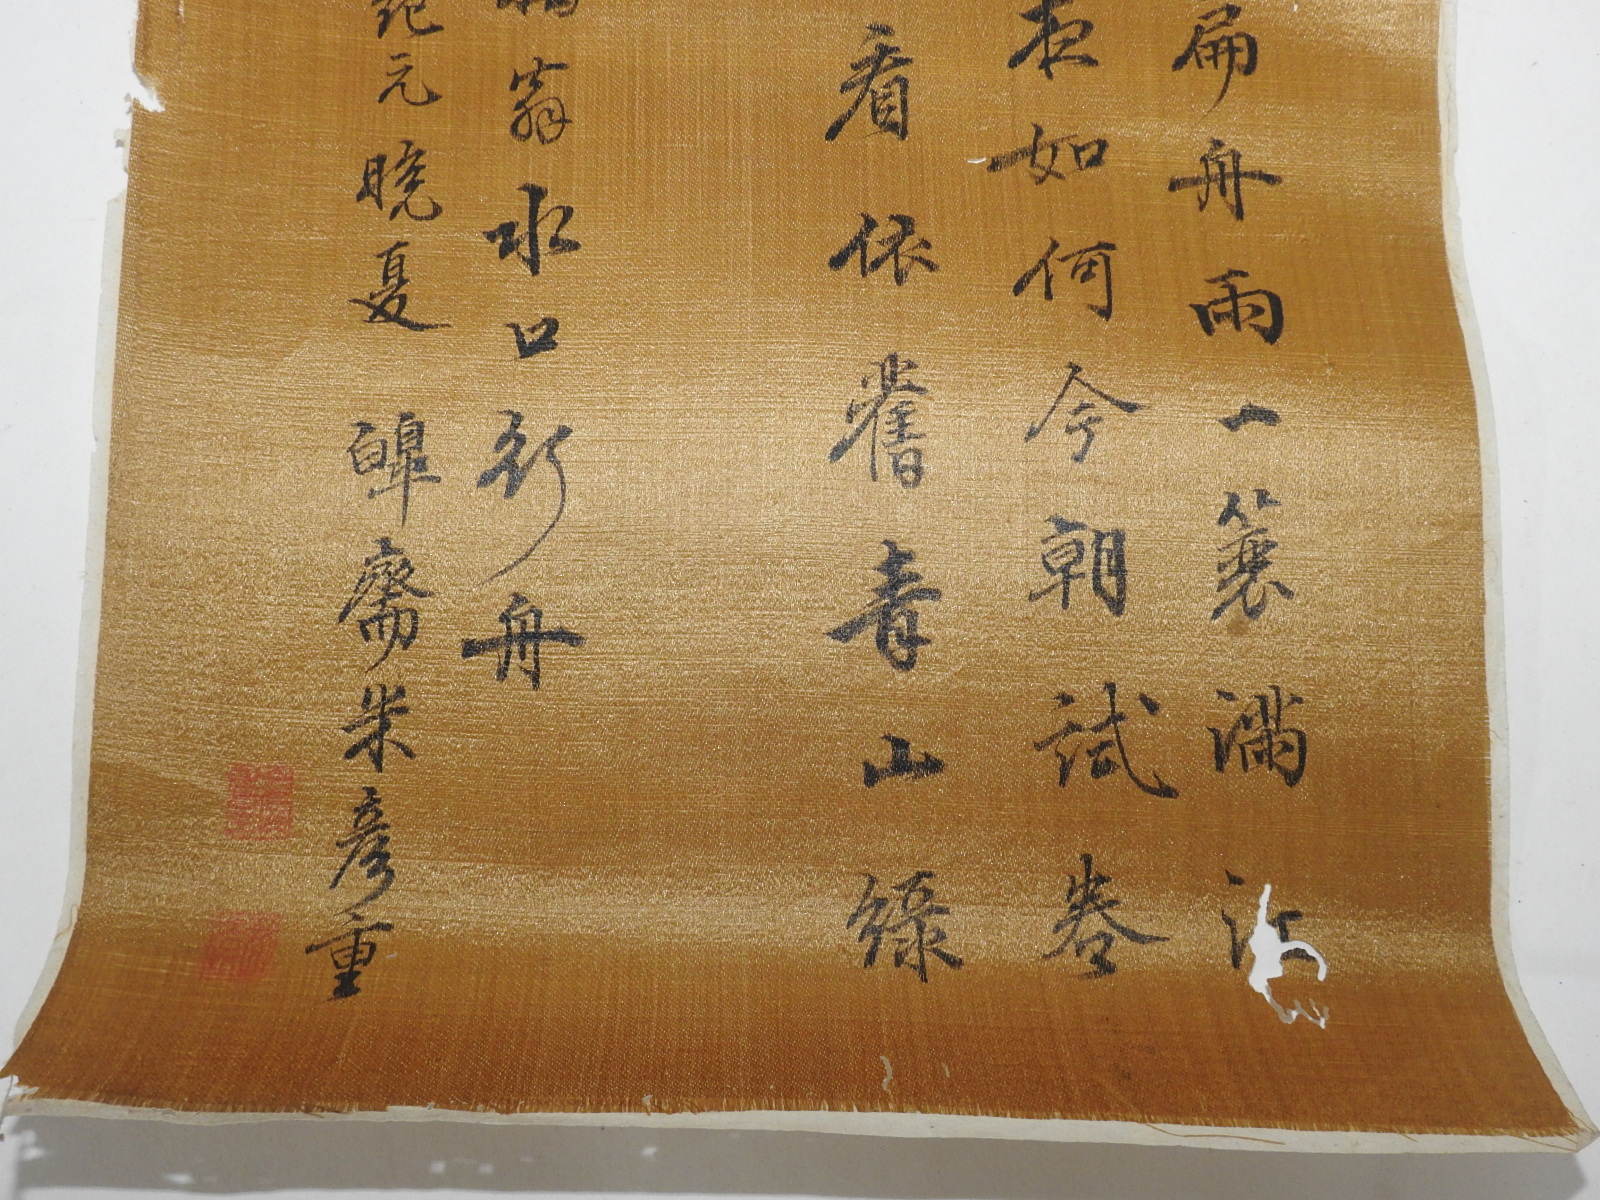 扁舟雨一蓑滿江
夜如何今朝試卷
看依舊青山綠
翁水口行舟
紀元晚夏 皞齋朱彥重